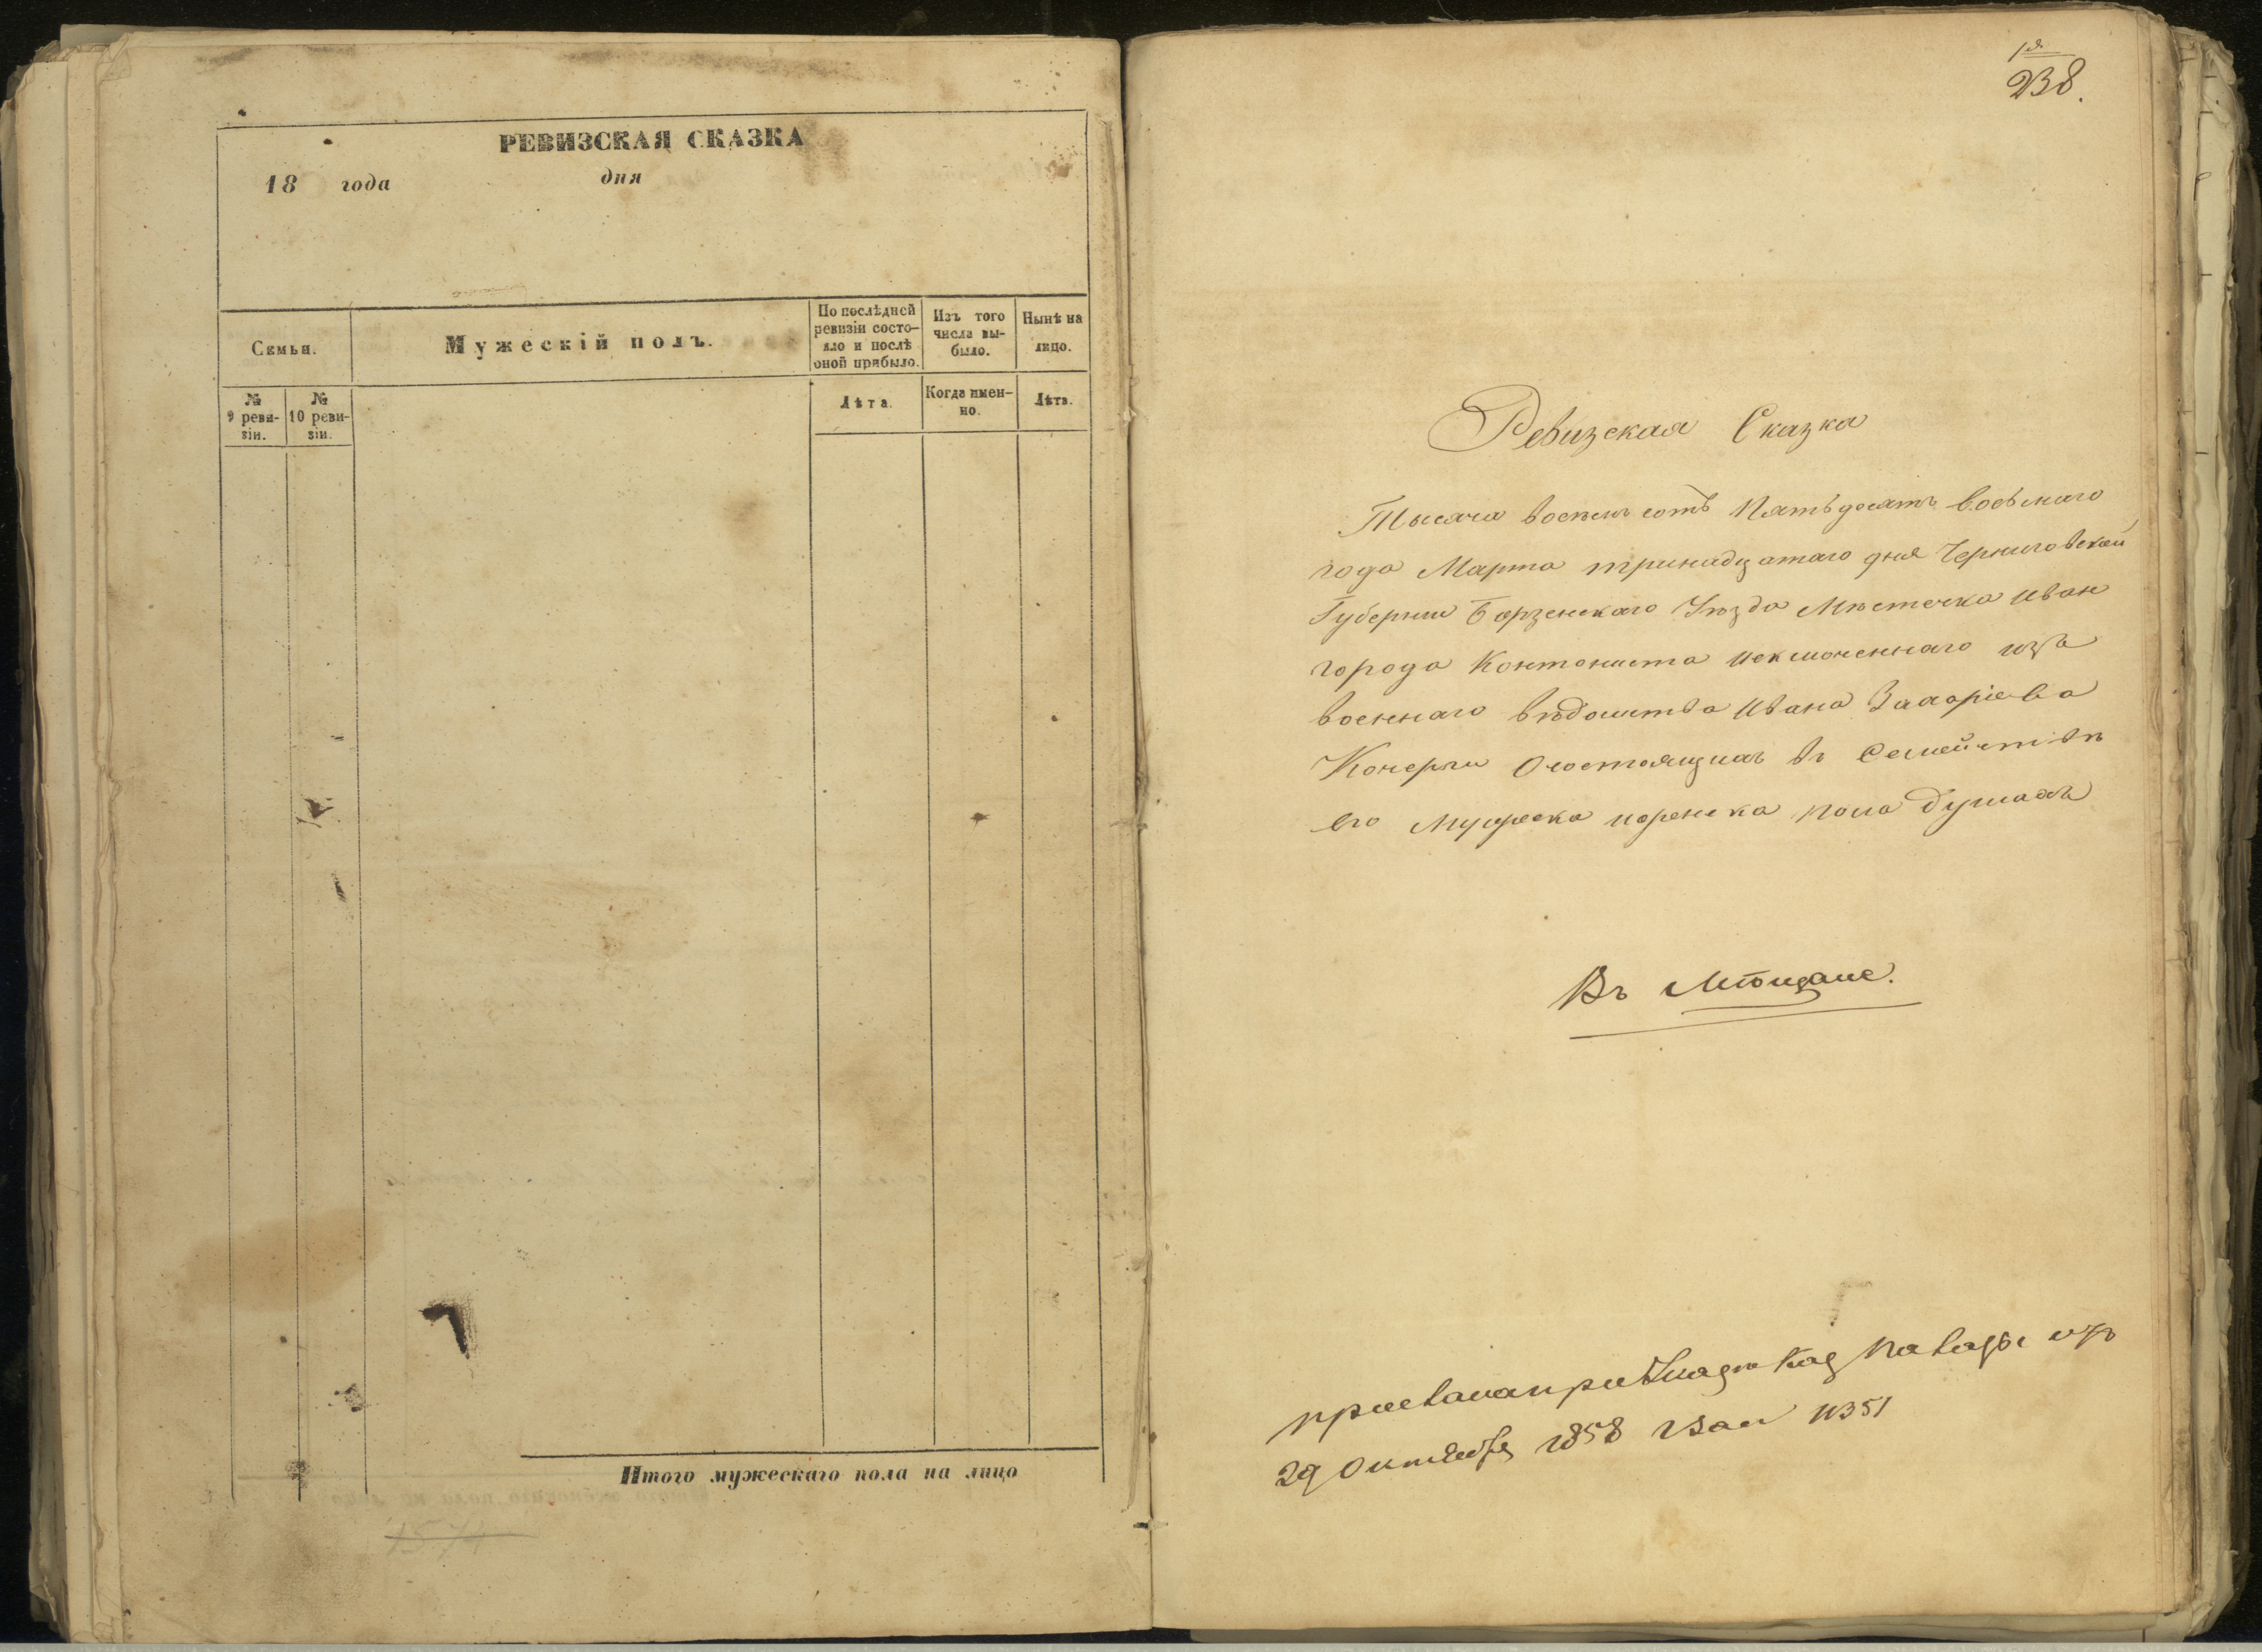 РЕВИЗСКАЯ СКАЗКА
18 года дня
Семьи.
Мужескій полъ.
По послѣдней
ревизіи состо-
яло и послѣ
оной прибыло.
Изъ того
числа вы-
было.
Нынѣ на
лицо.
№
9 реви-
зіи.
№
10 реви-
зіи.
Лѣта.
Когда имен-
но.
Лѣта.
Итого мужескаго пола на лицо
1574
238.
Ревизская Сказка
Тысяча восемь сотъ Пятьдесятъ восьмаго
года Марта тринадцатаго дня Черниговской
Губернии Борзенскаго Уѣзда Мѣстечка Иван
города Контониста исключеннаго изъ
военнаго вѣдомства Ивана Захаріева
Кочерги О состоящихъ въ Семействѣ
его Мужеска иженска пола душахъ
Въ
29 Октября 1858